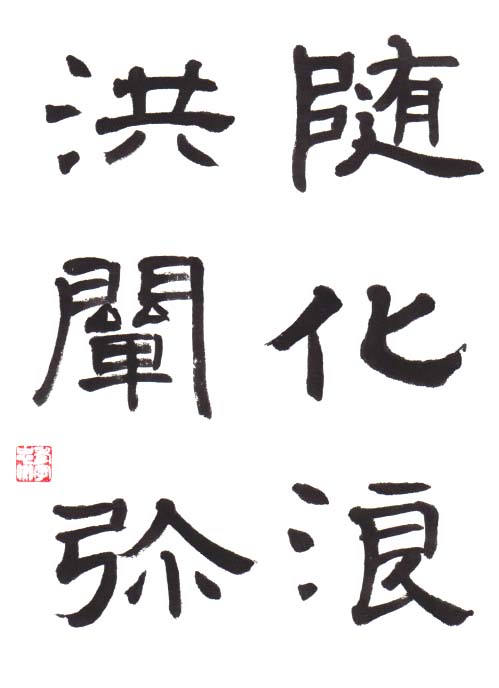 随化浪
洪闡弥